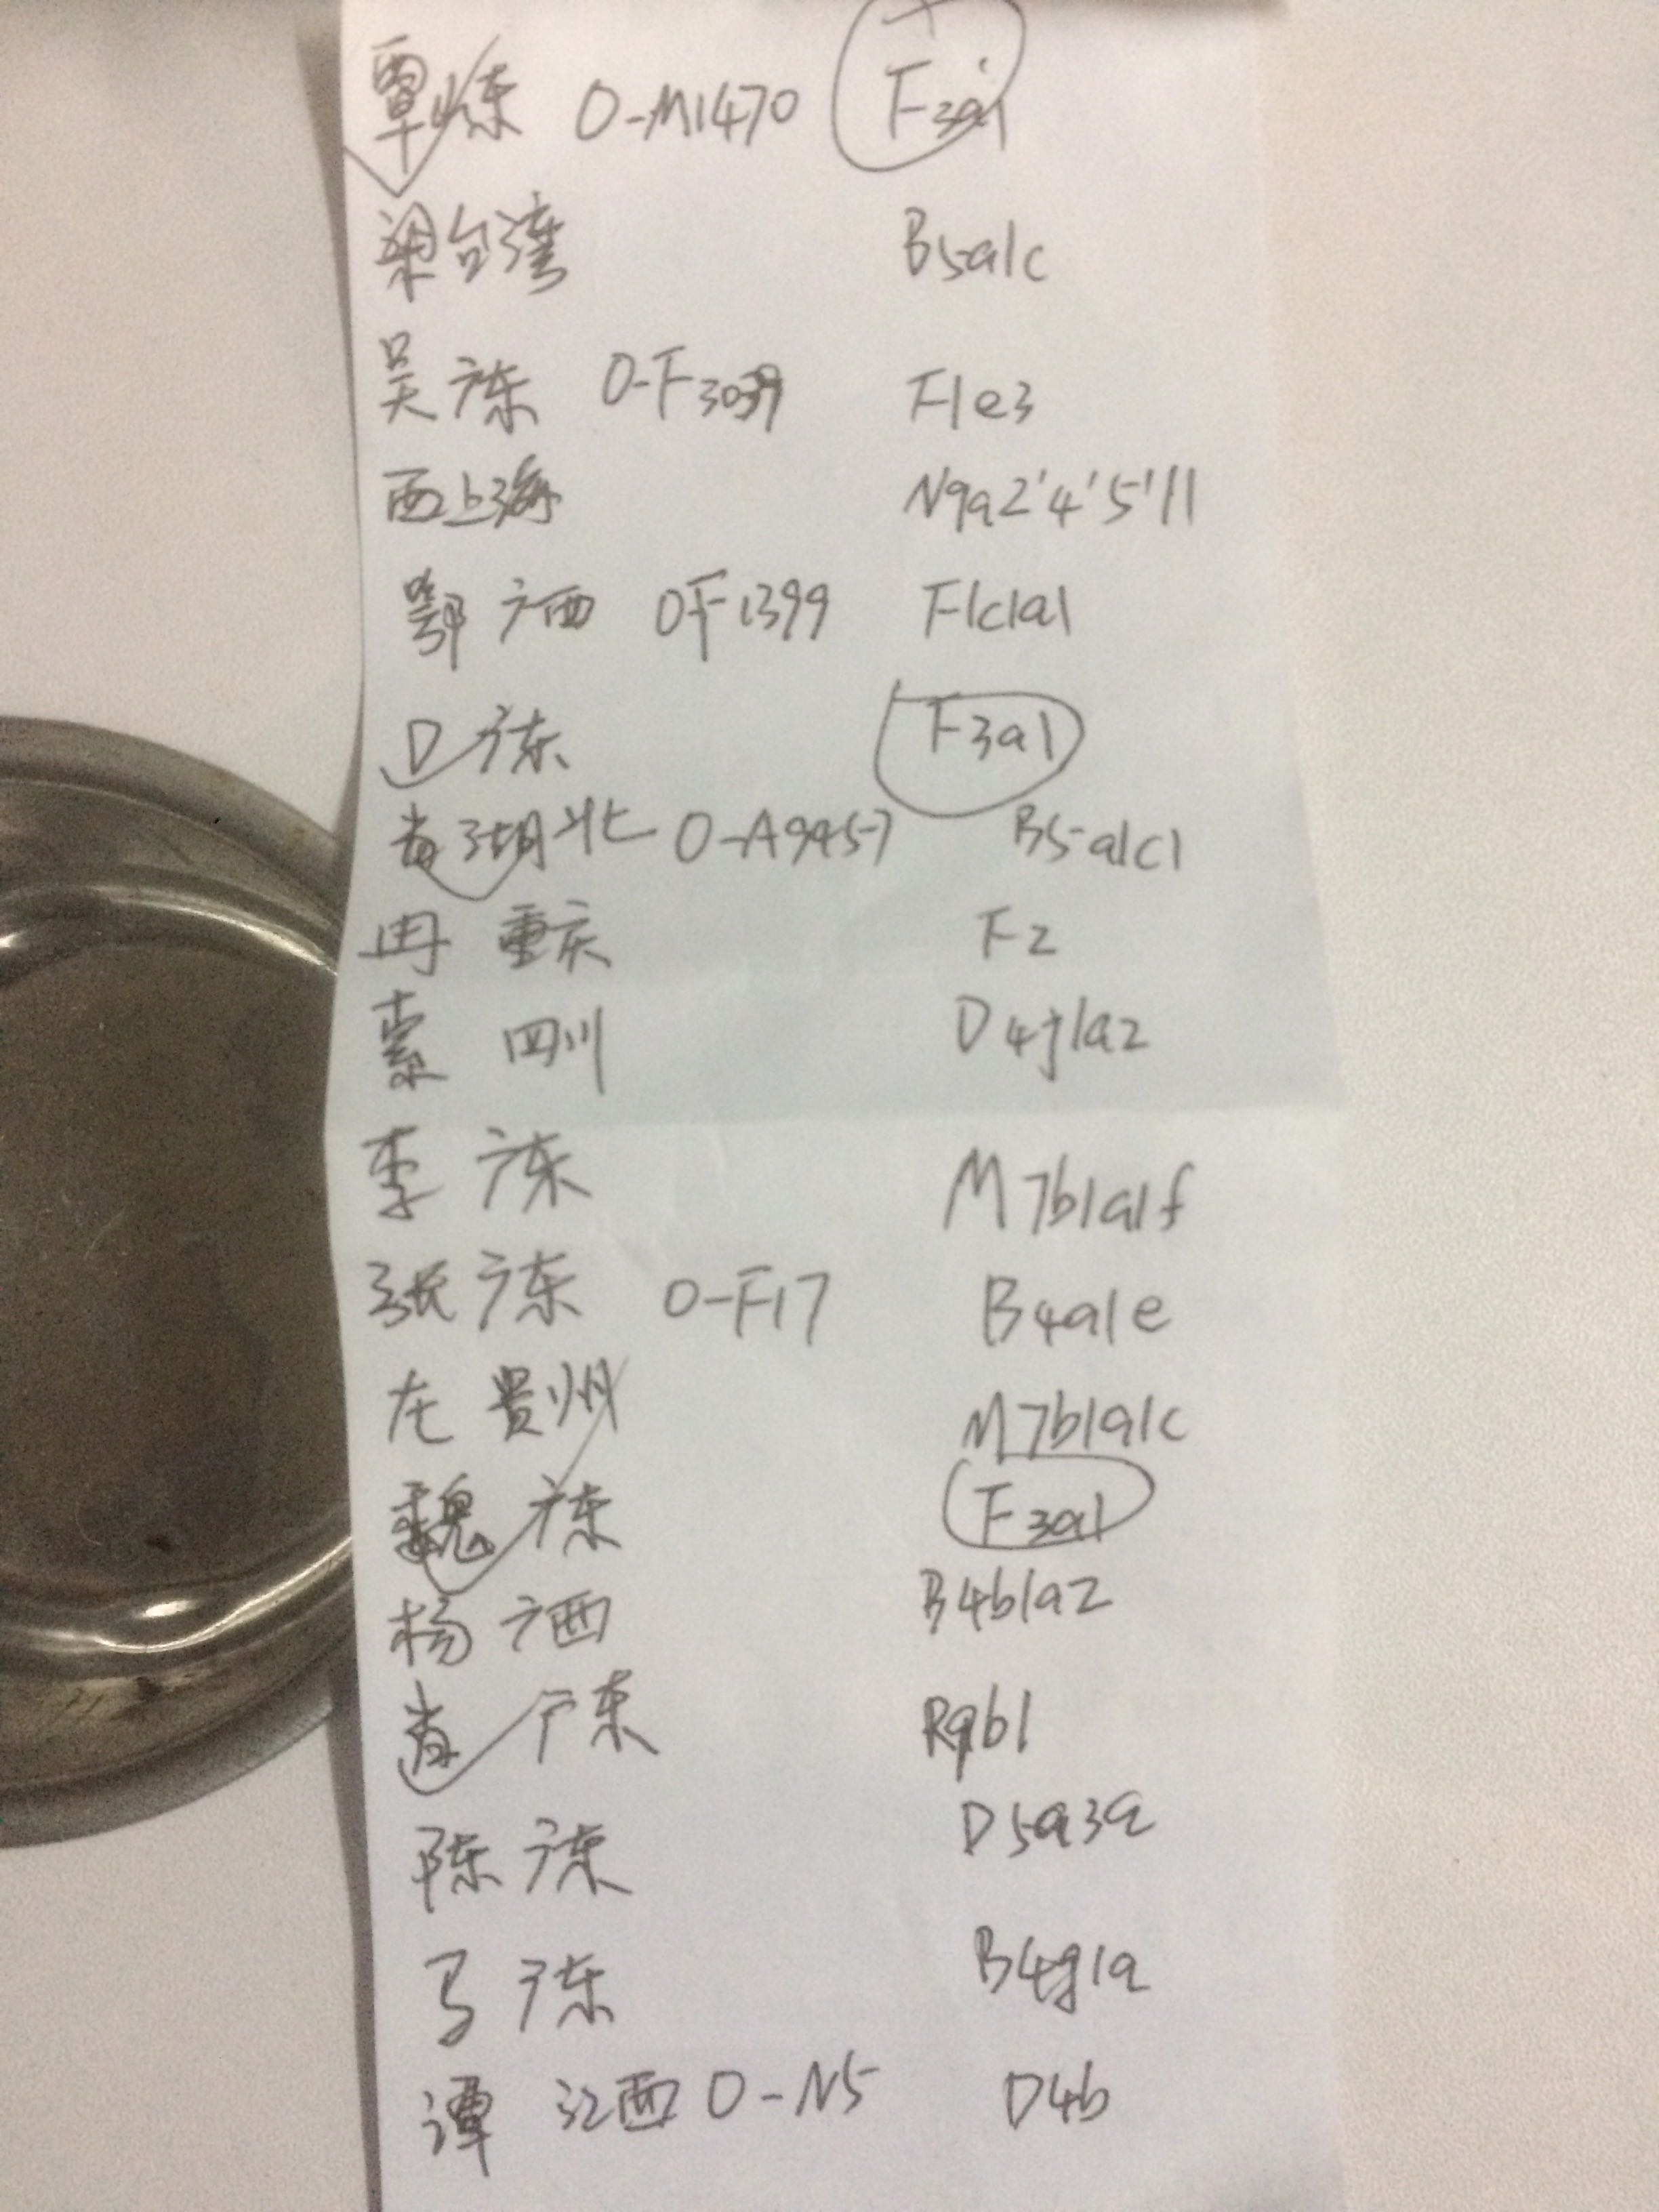 覃 广东 O-M1470 F3a1
梁台湾 B5a1c
吴广东 O-F3039 F1e3
西上海 N9a2'4'5'11
鄂广西 OF1399 F1c1a1
D 广东 F3a1
肖湖北 O-A9457 B5a1c1
冉 重庆 F2
素 四川 D4j1a2
李 广东 M7b1a1f
张广东 O-F17 B4a1e
左 贵州 M7b1a1c
魏广东 F3a1
杨 广西 B4b1a2
肖 广东 R9b1
陈广东 D5a3a
马广东 B4g1a
谭 江西 O-N5 D4b